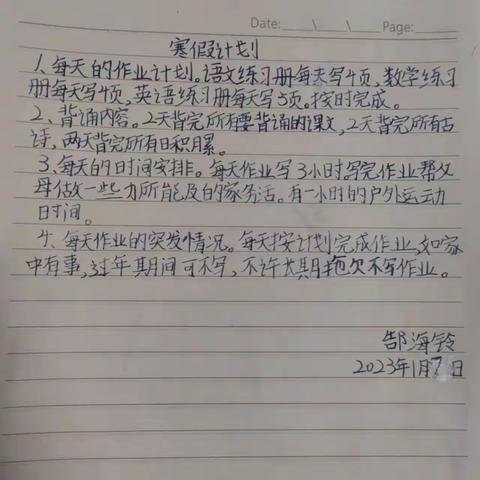 Date: \ \ Page:
寒假计划
1、每天的作业计划。语文练习册每天写4页,数学练习
册每天写4页,英语练习册每天写5页。按时完成。
2、背诵内容。2天背完所有要背诵的课文,2天背完所有古
诗,两天背完所有日积月累。
3、每天的时间安排。每天作业写3小时,写完作业帮父
母做一些力所能及的家务活。有一小时的户外运动
时间。
4、每天作业的突发情况。每天按计划完成作业,如家
中有事,过年期间可不写,不许长期拖欠不写作业。
郜海铃
2023年1月7日